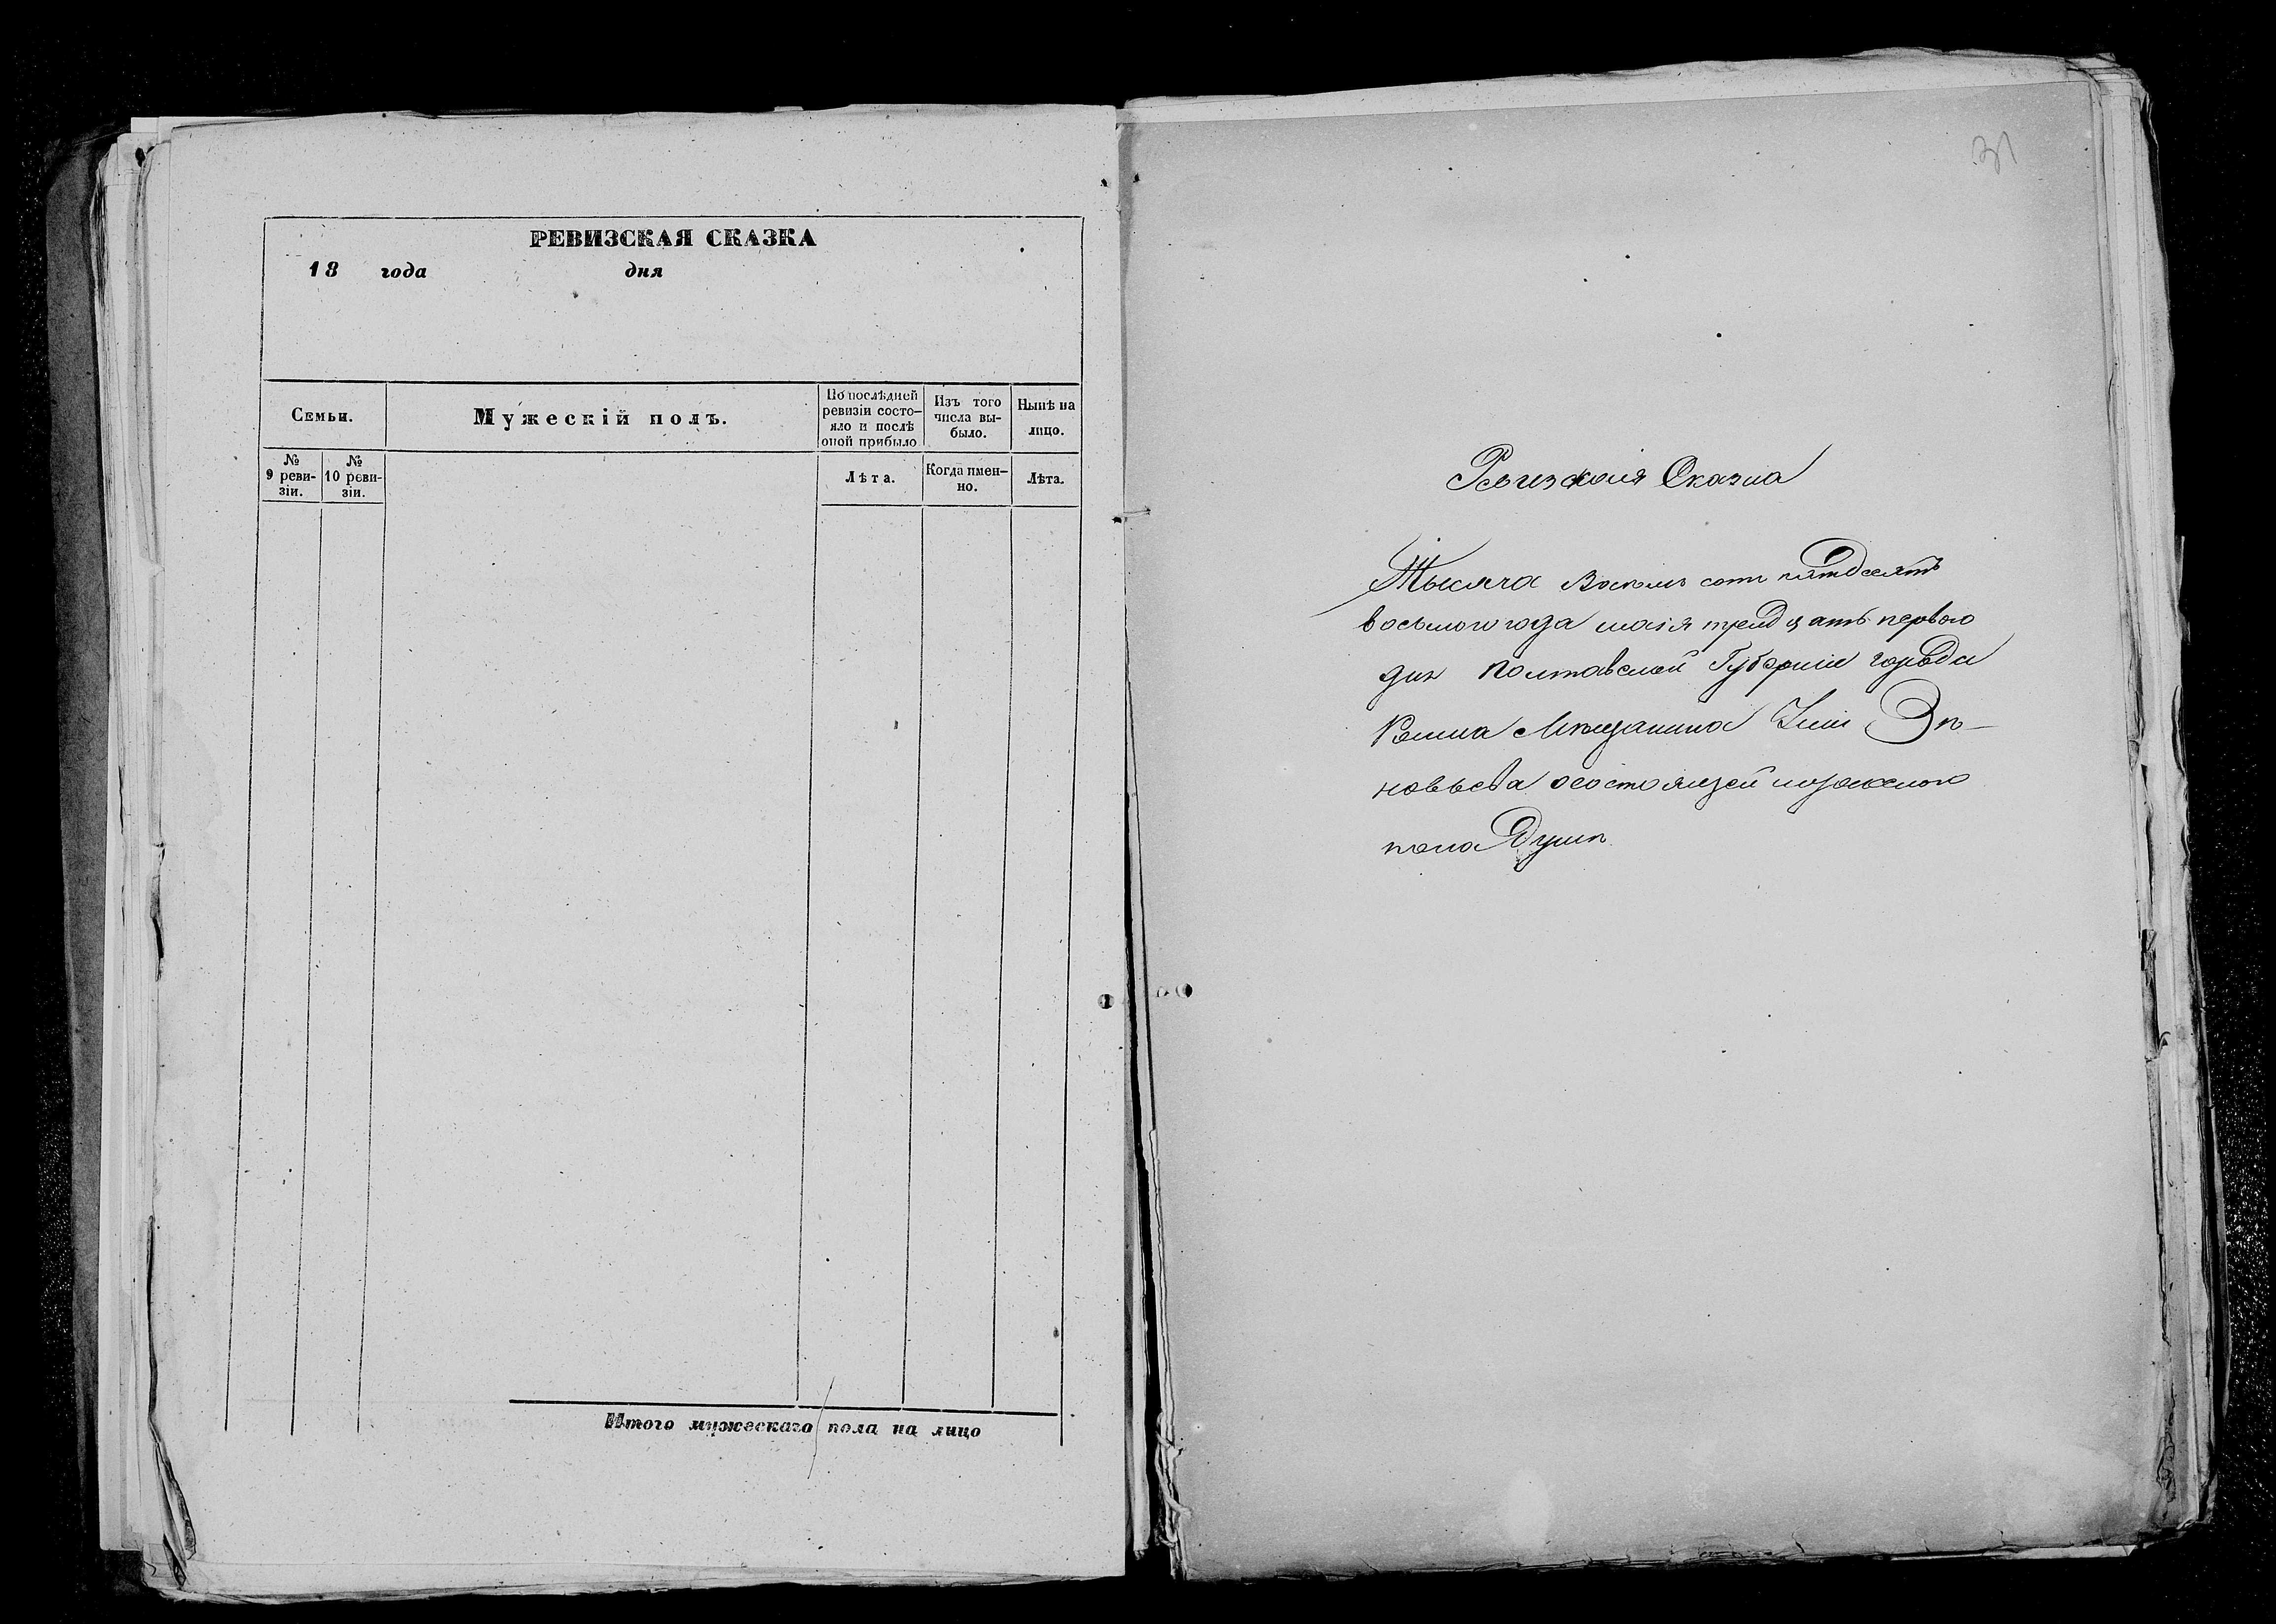 РЕВИЗСКАЯ СКАЗКА
18 года дня
Семьи.
Мужескій полъ.
По послѣдней
ревизіи состо-
яло и послѣ
оной прибыло
Изъ того
числа вы-
было.
Нынѣ на
лицо.
№
9 реви-
зіи.
№
10 реви-
зіи.
Лѣта.
Когда имен-
но.
Лѣта.
Итого мужескаго пола на лицо
31
Ревизская Сказка
Тысяча Восемь сотъ пятдесятъ
восьмого года маія тридцать первого
дня Полтавской Губерніи города
Ромна Мѣщанина
состоящей мужеского
пола Душѣ